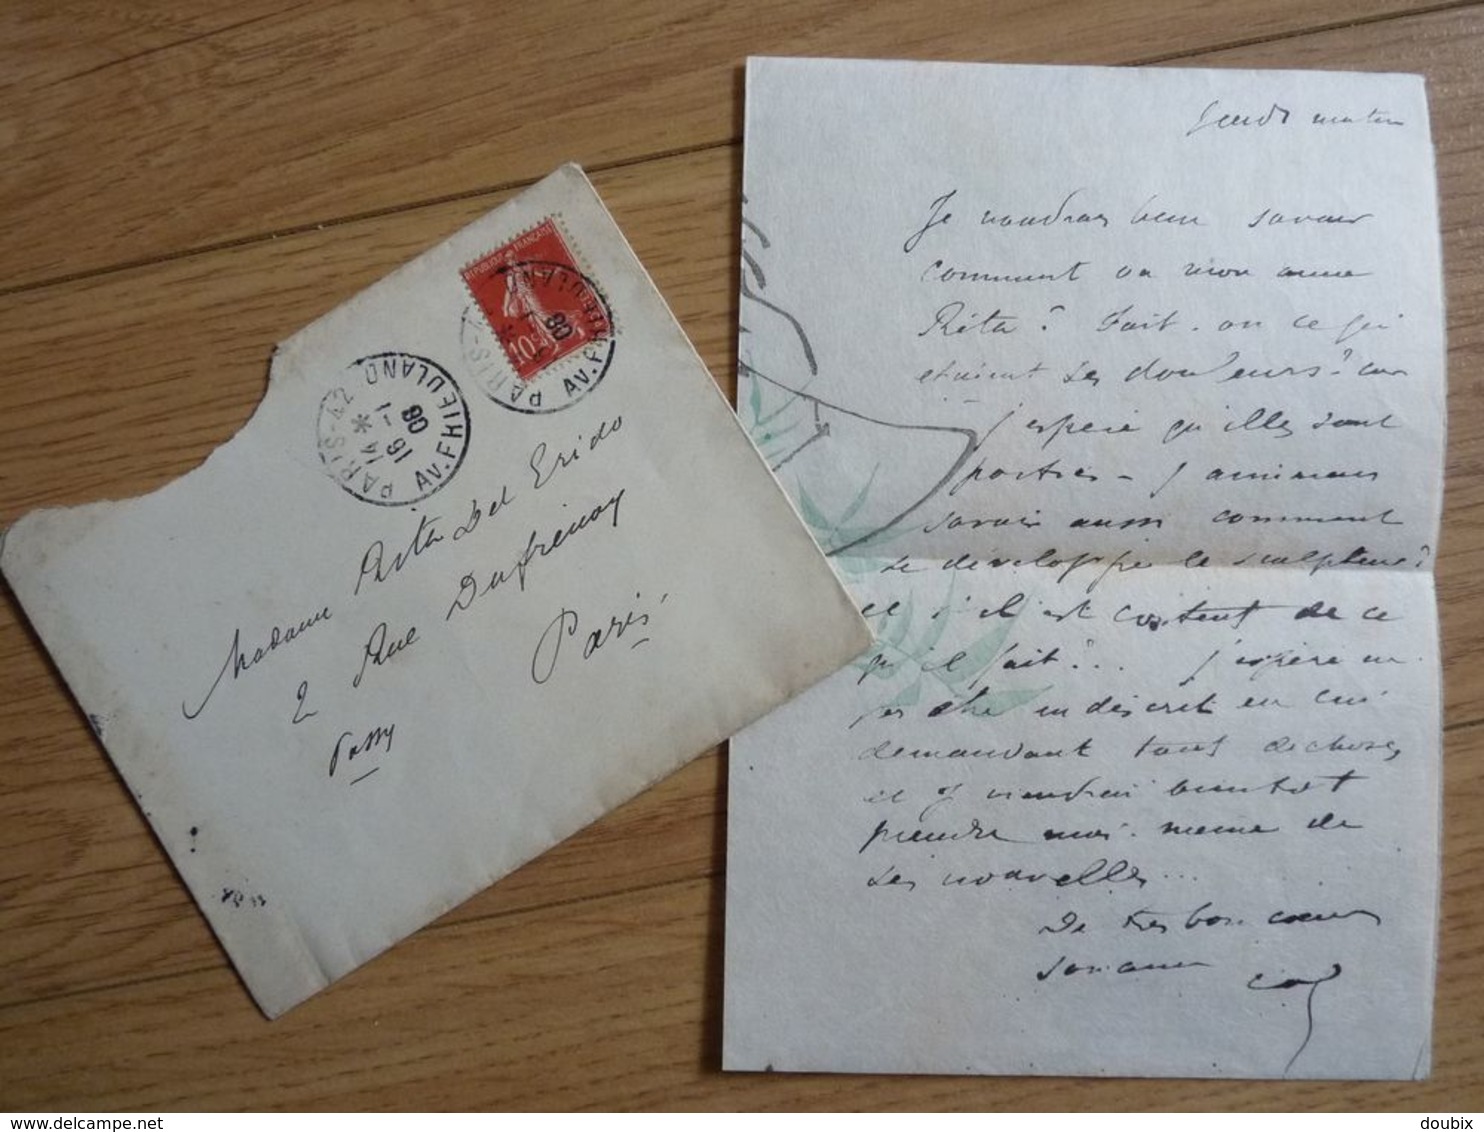 REPUBLIQUE FRANÇAISE
10
PARIS-42 AV. FRIEDLAND
14 * 1-
16 08
PARIS-42 AV. FRIEDLAND
08
Madame Rita Del Erido
2 Rue Dufrenoy
Paris
Passy
Jeudi matin
Je voudrais bien savoir
comment va mon amie
Rita? Sait-on ce qui
étaient ses douleurs? car
j'espère qu'illes sont
parties - J'aimerais
savoir aussi comment
se développe le sculpteur?
et s'il est content de ce
qu'il fait?.. J'espère ne
pas être indiscret en lui
demandant tant de choses,
et je viendrai bientôt
prendre moi-même de
ses nouvelles...
De très bon cœur
son ami
doubix